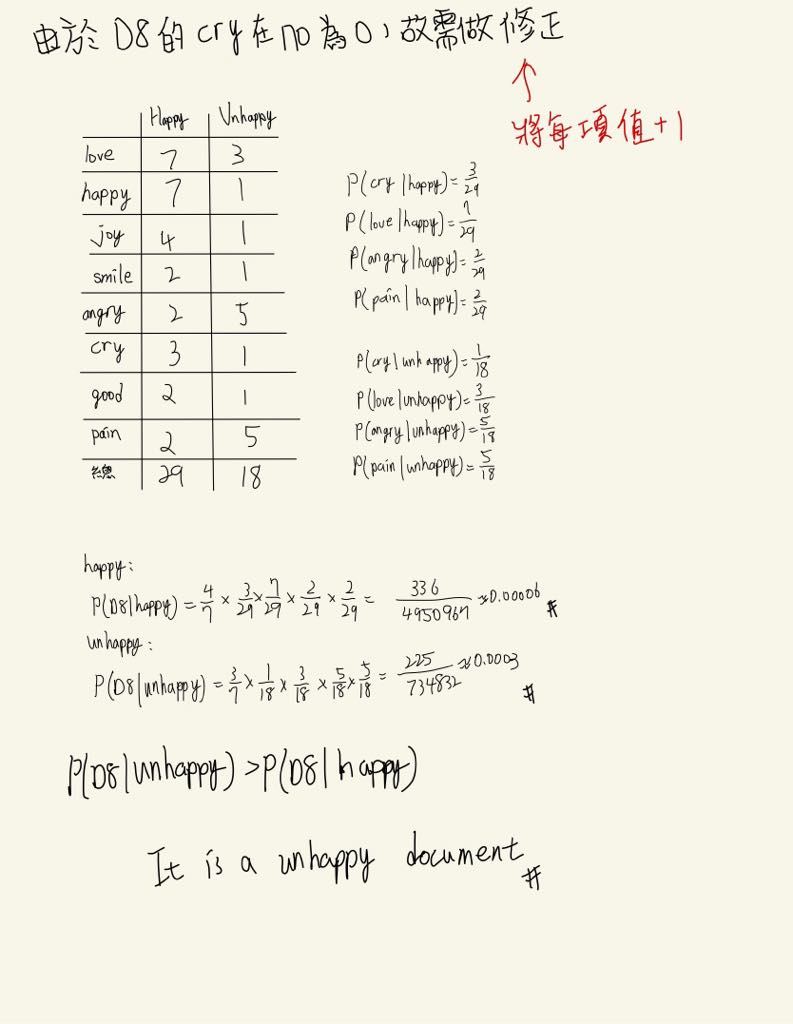 由於 D8 的 cry 在 no 為 0，故需做修正
↑
將每項值+1
Happy Unhappy
love 7 3
happy 7 1
joy 4 1
smile 2 1
angry 2 5
cry 3 1
good 2 1
pain 2 5
總 29 18
P(cry|happy)=3/29
P(love|happy)=7/29
P(angry|happy)=2/29
P(pain|happy)=2/29
P(cry|unhappy)=1/18
P(love|unhappy)=3/18
P(angry|unhappy)=5/18
P(pain|unhappy)=5/18
happy:
P(D8|happy)=4/7×3/29×7/29×2/29×2/29=336/4950967≈0.00006 #
unhappy:
P(D8|unhappy)=3/7×1/18×3/18×5/18×5/18=225/734832≈0.0003 #
P(D8|unhappy)>P(D8|happy)
It is a unhappy document #